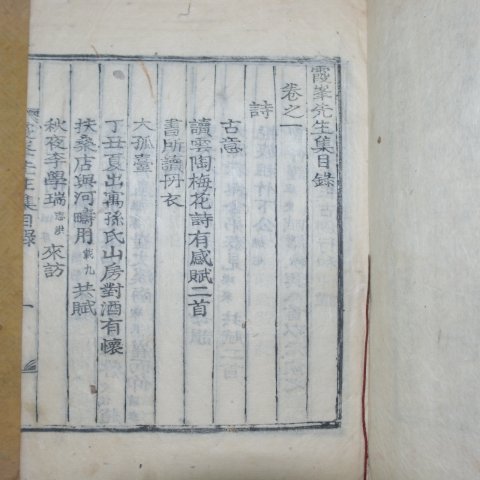 霞峯先生集目錄
卷之一
詩
古意
讀雲陶梅花詩有感賦二首
書所讀丹衣
大孤臺
丁丑夏出寓孫氏山房對酒有懷
扶桑店與河疇用載九共賦
秋夜李學瑞志洪來訪
霞峯先生集目錄 一